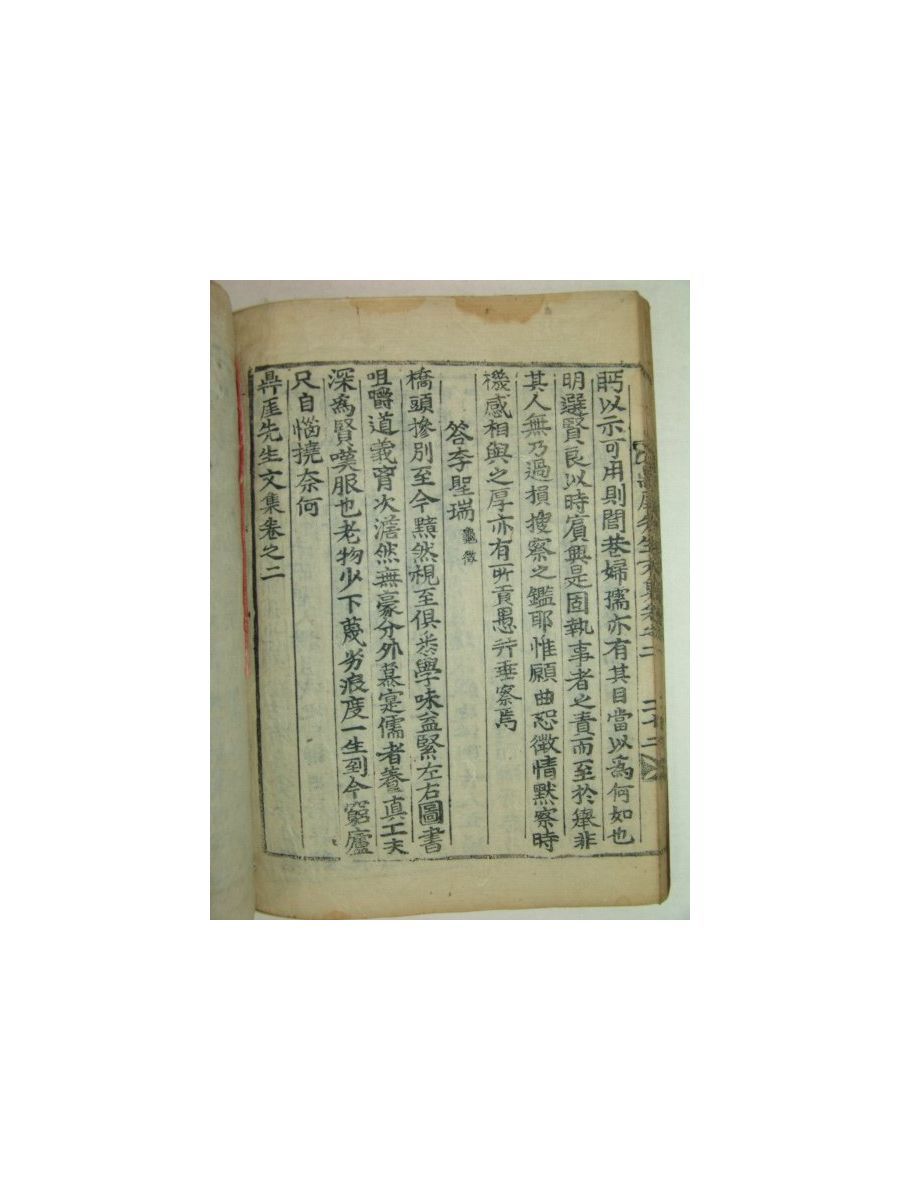 眄以示可用則閭巷婦孺亦有其目當以爲何如也
明選賢良以時賓興是固執事者之責而至於擧非
其人無乃過損搜察之鑑耶惟願曲恕微情默察時
機感相與之厚亦有所貢愚幷垂察焉
答李聖瑞 龜徵
橋頭摻別至今黯然視至俱悉學味益緊左右圖書
咀嚼道義胷次澹然無豪分外慕寔儒者養真工夫
深爲賢嘆服也老物少下蔑劣痕度一生到今窮廬
尺自惱撓奈何
鼎厓先生文集卷之二
先生文集卷之二 二十二